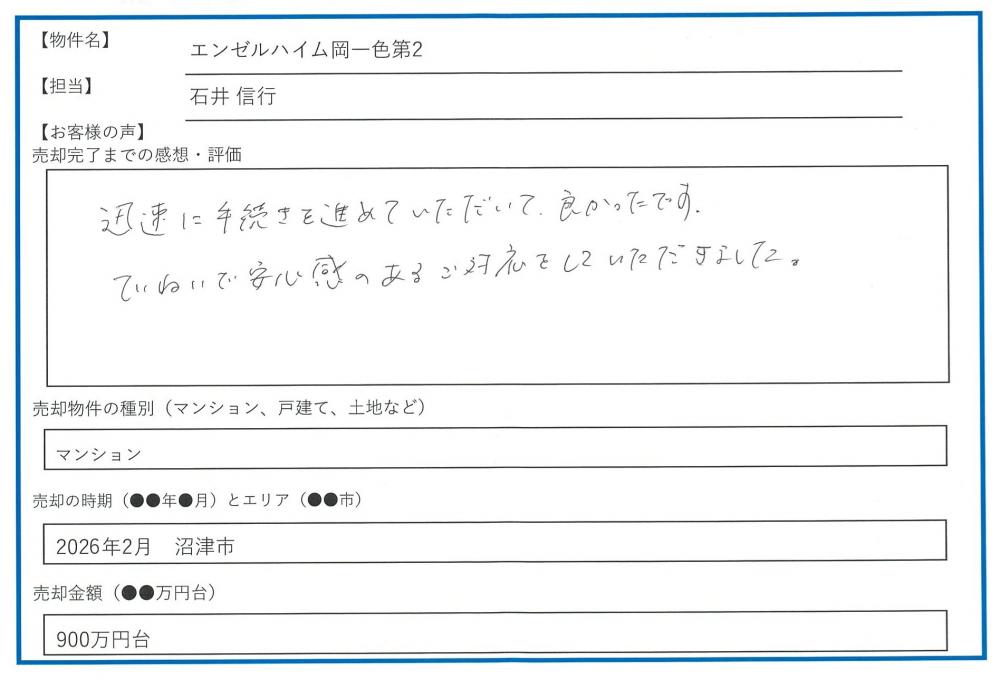 【物件名】
エンゼルハイム岡一色第2
【担当】
石井 信行
【お客様の声】
売却完了までの感想・評価
迅速に手続きを進めていただいて、良かったです。
ていねいで安心感のあるご対応をしていただきました。
売却物件の種別（マンション、戸建て、土地など）
マンション
売却の時期（●●年●月）とエリア（●●市）
2026年2月　沼津市
売却金額（●●万円台）
900万円台